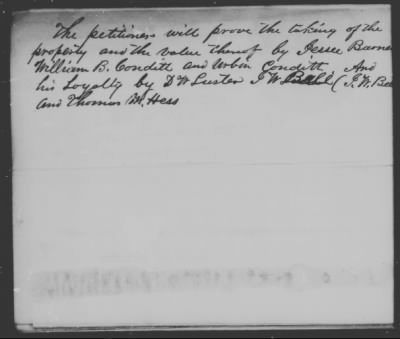 The petitioner will prove the taking of the
property and the value thereof by Jesse Barnes
William B. Conditt and Urbin Conditt, And
his Loyalty by D W Luster J W Ball (J. W. Be
and Thomas M. Hess